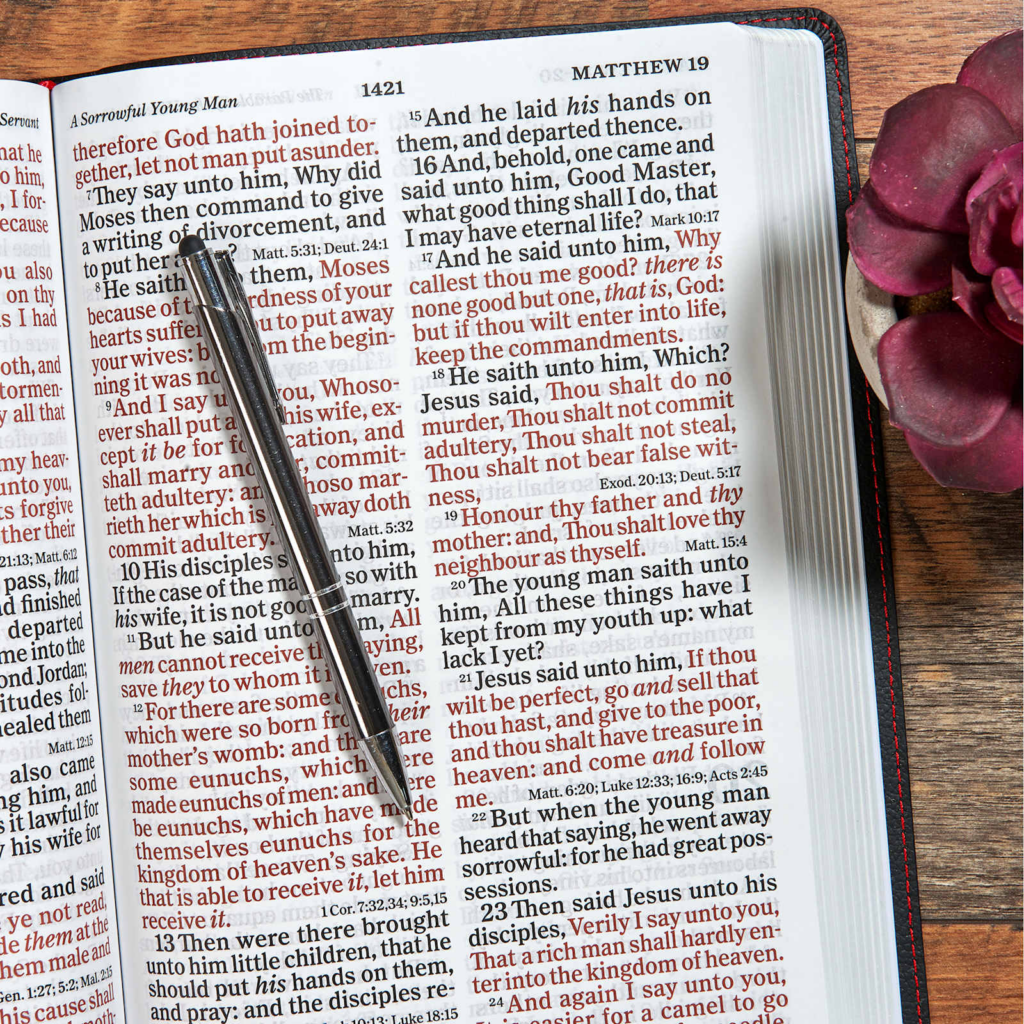 Servant
hat he
o him,
, I for-
ecause
ou also
on thy
s I had
oth, and
tormen-
y all that
my heav-
unto you,
ts forgive
ther their
21:13; Matt. 6:12
pass, that
d finished
departed
me into the
ond Jordan;
titudes fol-
healed them
Matt. 12:15
also came
ng him, and
s it lawful for
y his wife for
red and said
ye not read,
de them at the
hem male and
Gen. 1:27; 5:2; Mal. 2:15
his cause shall
A Sorrowful Young Man
1421
MATTHEW 19
therefore God hath joined to-
gether, let not man put asunder.
7 They say unto him, Why did
Moses then command to give
a writing of divorcement, and
to put her a ?
Matt. 5:31; Deut. 24:1
8 He saith them, Moses
because of t rdness of your
hearts suffer u to put away
your wives: b om the begin-
ning it was no
9 And I say u you, Whoso-
ever shall put a his wife, ex-
cept it be for fo cation, and
shall marry and r, commit-
teth adultery: an hoso mar-
rieth her which is away doth
commit adultery.
Matt. 5:32
10 His disciples s nto him,
If the case of the ma so with
his wife, it is not goo marry.
11 But he said unto m, All
men cannot receive th aying,
save they to whom it i ven.
12 For there are some uchs,
which were so born fro heir
mother's womb: and th are
some eunuchs, which ere
made eunuchs of men: and ere
be eunuchs, which have made
themselves eunuchs for the
kingdom of heaven's sake. He
that is able to receive it, let him
receive it.
1 Cor. 7:32,34; 9:5,15
13 Then were there brought
unto him little children, that he
should put his hands on them,
and pray: and the disciples re-
10:13; Luke 18:15
15 And he laid his hands on
them, and departed thence.
16 And, behold, one came and
said unto him, Good Master,
what good thing shall I do, that
I may have eternal life? Mark 10:17
17 And he said unto him, Why
callest thou me good? there is
none good but one, that is, God:
but if thou wilt enter into life,
keep the commandments.
18 He saith unto him, Which?
Jesus said, Thou shalt do no
murder, Thou shalt not commit
adultery, Thou shalt not steal,
Thou shalt not bear false wit-
ness, Exod. 20:13; Deut. 5:17
19 Honour thy father and thy
mother: and, Thou shalt love thy
neighbour as thyself. Matt. 15:4
20 The young man saith unto
him, All these things have I
kept from my youth up: what
lack I yet?
21 Jesus said unto him, If thou
wilt be perfect, go and sell that
thou hast, and give to the poor,
and thou shalt have treasure in
heaven: and come and follow
me. Matt. 6:20; Luke 12:33; 16:9; Acts 2:45
22 But when the young man
heard that saying, he went away
sorrowful: for he had great pos-
sessions.
23 Then said Jesus unto his
disciples, Verily I say unto you,
That a rich man shall hardly en-
ter into the kingdom of heaven.
24 And again I say unto you,
It is easier for a camel to go